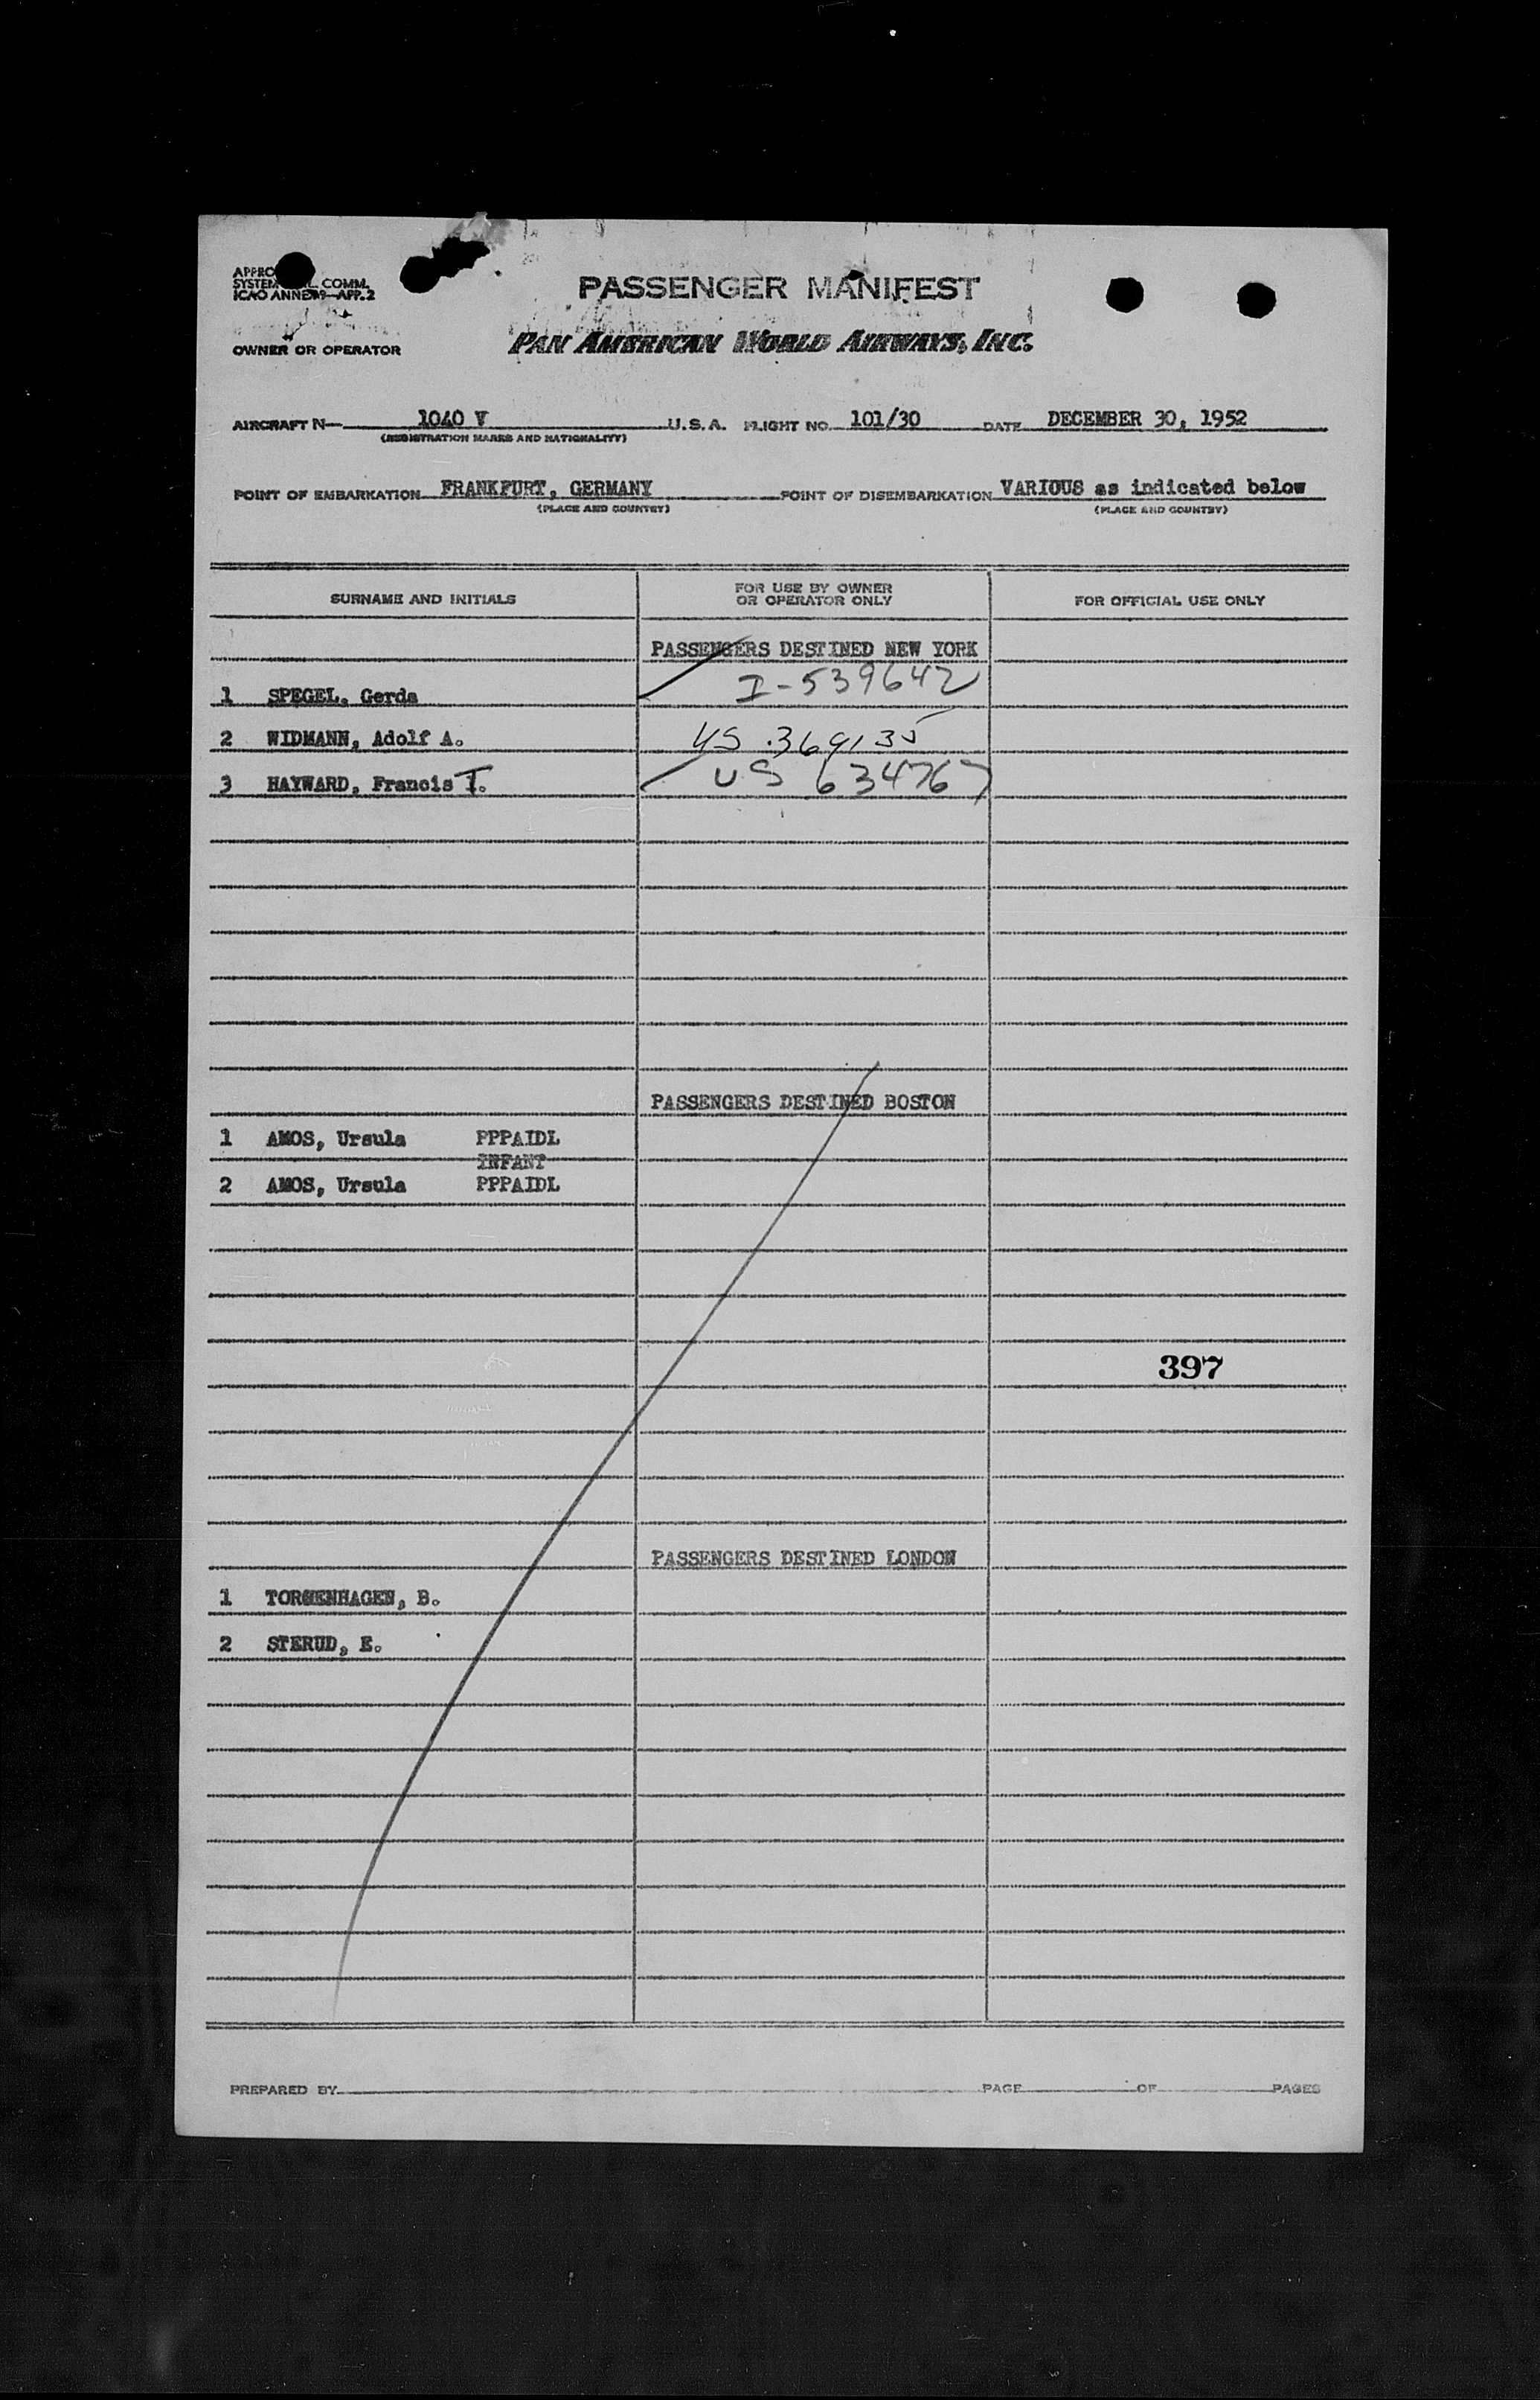 PASSENGER MANIFEST
SYSTEM COMM.
ICAO ANNEX 9—APP. 2
OWNER OR OPERATOR
PAN AMERICAN WORLD AIRWAYS, INC.
AIRCRAFT N— 1040 V U.S.A. FLIGHT NO. 101/30 DATE DECEMBER 30, 1952
(REGISTRATION MARKS AND NATIONALITY)
POINT OF EMBARKATION FRANKFURT, GERMANY POINT OF DISEMBARKATION VARIOUS as indicated below
(PLACE AND COUNTRY) (PLACE AND COUNTRY)
SURNAME AND INITIALS
FOR USE BY OWNER
OR OPERATOR ONLY
FOR OFFICIAL USE ONLY
PASSENGERS DESTINED NEW YORK
1 SPEGEL, Gerda I-539642
2 WIDMANN, Adolf A. US 369135
3 HAYWARD, Francis T. US 634767
PASSENGERS DESTINED BOSTON
1 AMOS, Ursula PPPAIDL
INFANT
2 AMOS, Ursula PPPAIDL
397
PASSENGERS DESTINED LONDON
1 B.
2 STERUD, E.
PREPARED BY PAGE OF PAGES